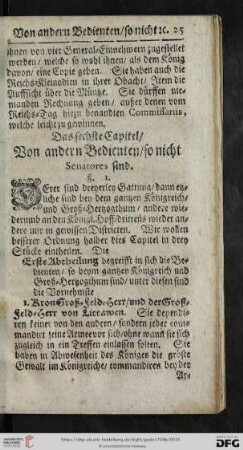 Von andern Bedienten/so nicht ꝛc. 25
ihnen von vier General-Einnehmern zugestellet
werden/ welche so wohl ihnen/ als dem König
davon/ eine Copie geben. Sie haben auch die
Reichs-Kleinodien in ihrer Obacht/ Item die
Auffsicht über die Müntze. Sie dürffen nie-
manden Rechnung geben/ ausser denen vom
Reichs-Tag hierzu benandten Commissarius,
welche leicht zu gewinnen.
Das sechste Capitel/
Von andern Bedienten/so nicht
Senatores sind.
§. 1.
Derer sind dreyerley Gattung/ dann etz-
liche sind bey dem gantzen Königreich/
und Groß-Hertzogthum/ andere wie-
derumb an den Königl. Hoff/drittens wieder an-
dere nur in gewissen Districten. Wir wollen
besserer Ordnung halber dies Capitel in drey
Stücke eintheilen. Die
Erste Abtheilung begreifft in sich die Be-
dienten/ so beym gantzen Königreich und
Groß-Hertzogthum sind/ unter diesen sind
die Vornehmste
1. Kron Groß-Feld-Herr/ und der Groß-
Feld-Herr von Littawen. Sie dependi-
ren keiner von den andern/ sondern jeder com-
mandirt seine Armee vor sich/ohne wann sie sich
zugleich in ein Treffen einlassen sollen. Sie
haben in Abwesenheit des Königes die gröste
Gewalt im Königreiche/ commandiren bey der
Ar-
DFG